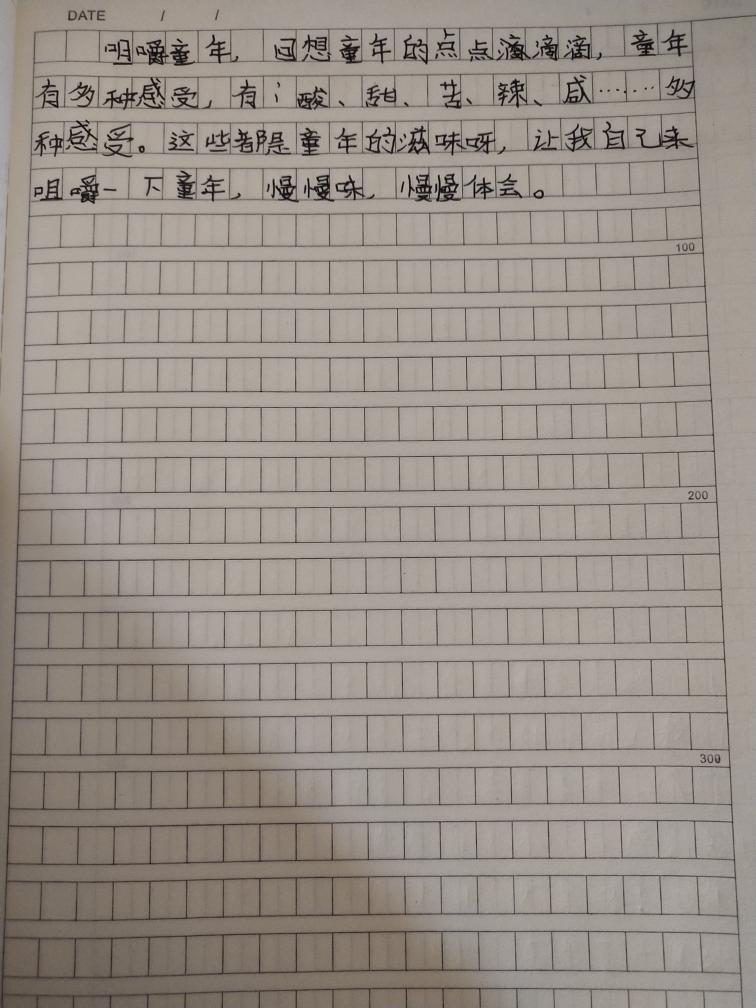 DATE / /
咀嚼童年，回想童年的点点滴滴滴，童年
有多种感受，有；酸、甜、苦、辣、咸……多
种感受。这些都是童年的滋味呀，让我自己来
咀嚼一下童年，慢慢味，慢慢体会。
100
200
300